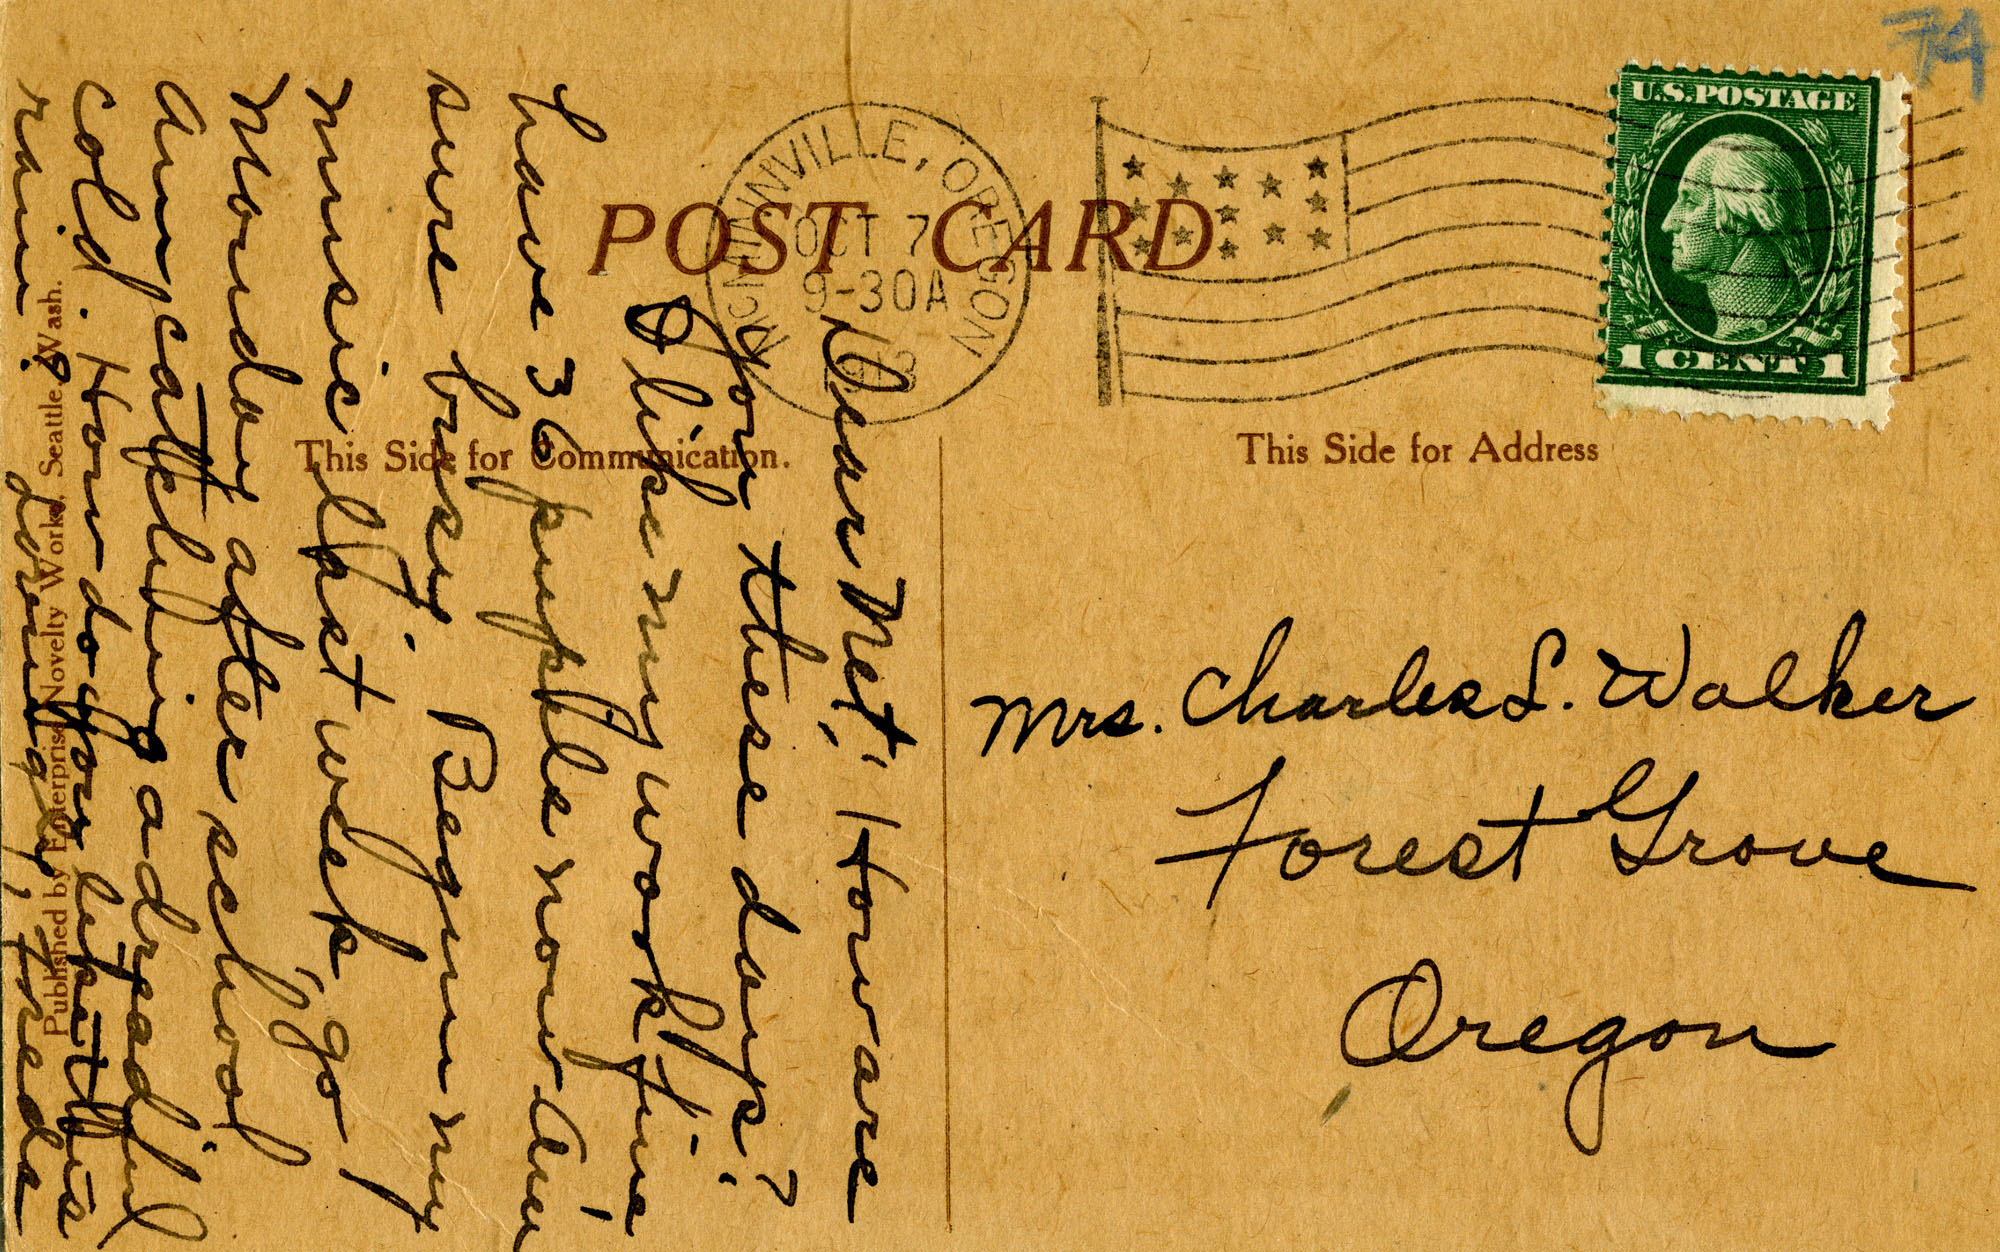 74
U.S. POSTAGE
1 CENT 1
McMINNVILLE, OREGON
OCT 7
9-30A
1913
POST CARD
This Side for Communication.
This Side for Address
Dear Net; How are
you these days?
I like my work fine
have 36 pupils now. Am
sure busy. Begun my
music last week, go
Monday after school
Am catching a dreadful
cold. How do you like this
rain?
Lovingly, Freda
Mrs. Charles L. Walker
Forest Grove
Oregon
Published by Enterprise Novelty Works, Seattle, Wash.